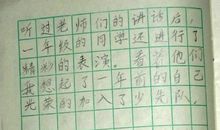 听过老师们的讲话后，
一年级的同学还进行了
精彩的表演。看着他们
我想起了一年前的自己
光荣的加入了少先队，